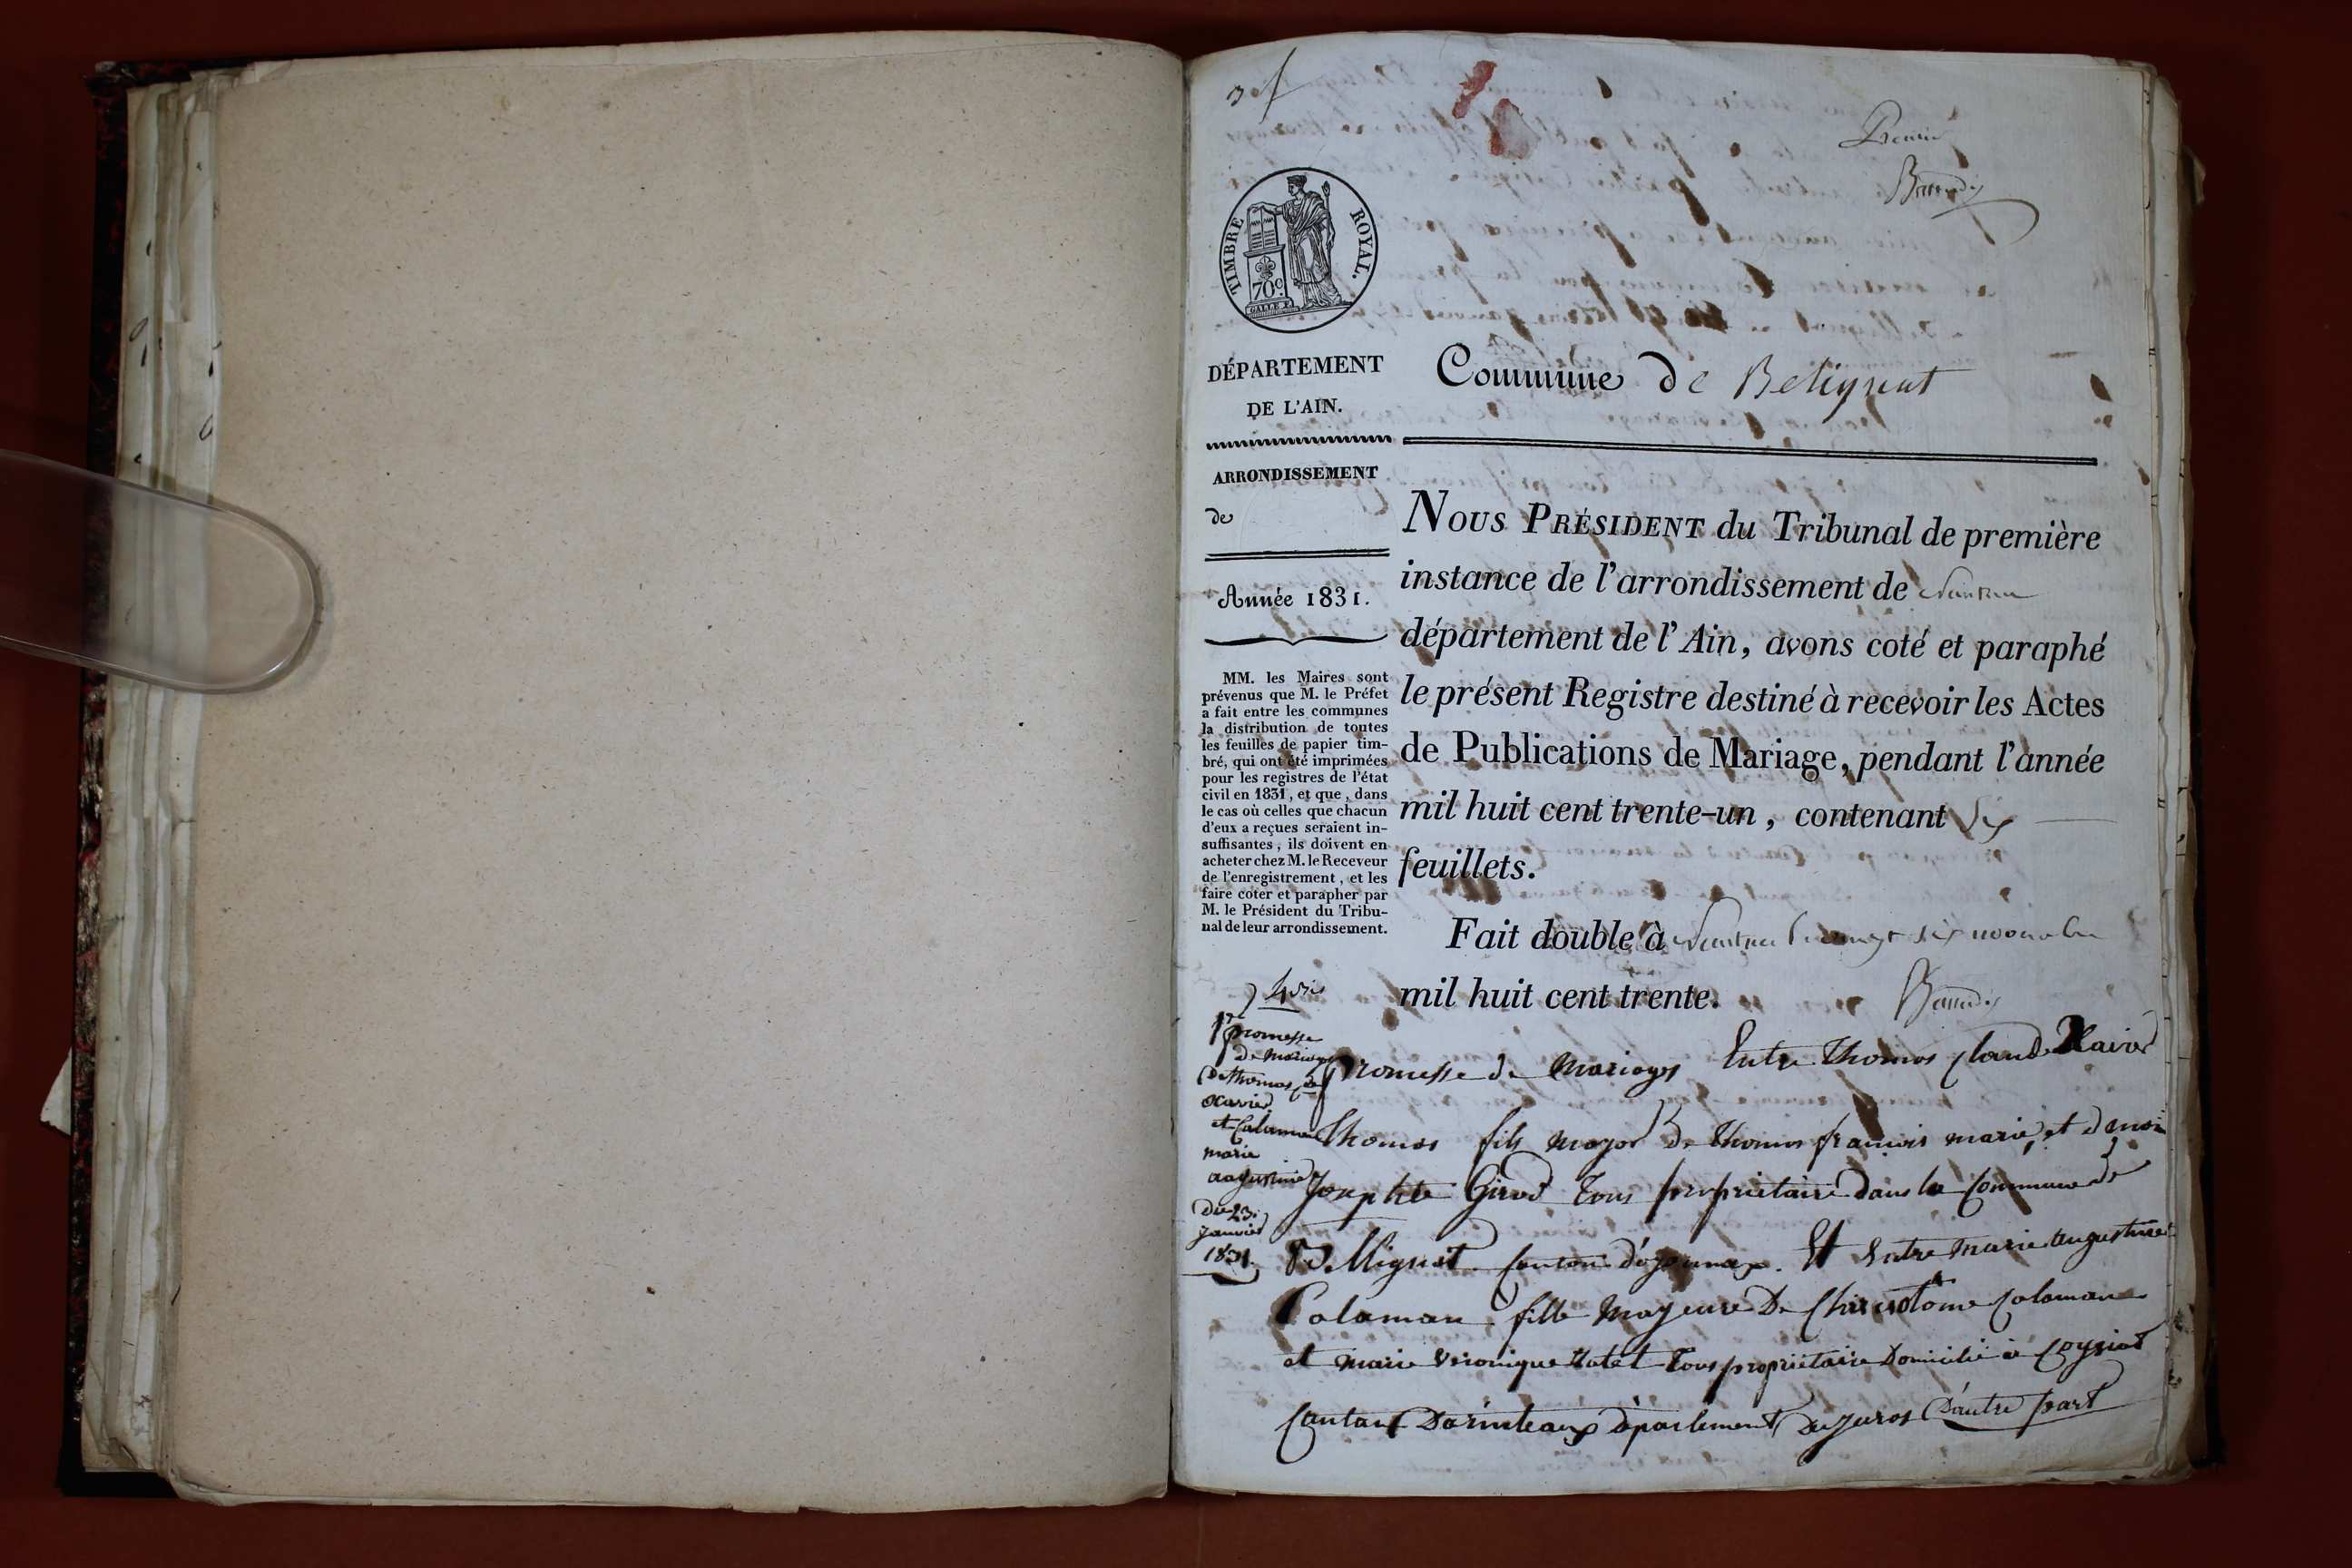 3 f
Premier
TIMBRE ROYAL.
70c
DÉPARTEMENT
DE L'AIN.
Commune de Belignat
ARRONDISSEMENT
de
Année 1831.
MM. les Maires sont
prévenus que M. le Préfet
a fait entre les communes
la distribution de toutes
les feuilles de papier tim-
bré, qui ont été imprimées
pour les registres de l'état
civil en 1831, et que, dans
le cas où celles que chacun
d'eux a reçues seraient in-
suffisantes, ils doivent en
acheter chez M. le Receveur
de l'enregistrement, et les
faire coter et parapher par
M. le Président du Tribu-
nal de leur arrondissement.
NOUS PRÉSIDENT du Tribunal de première
instance de l'arrondissement de Nantua
département de l'Ain, avons coté et paraphé
le présent Registre destiné à recevoir les Actes
de Publications de Mariage, pendant l'année
mil huit cent trente-un, contenant Six
feuillets.
Fait double à Nantua le vingt six novembre
mil huit cent trente.
1re
promesse
de mariage
De thomas
xavier
et Calaman
marie
augustine
du 23
janvier
1831.
Promesse de mariages Entre Thomas Claude Xavier
Thomas fils major De Thomas francois marie, et de
Josephte Girod Tous propriétaire dans la Commune de
Bellignat Canton d'oyonnax. Et Entre Marie augustine
Calaman fille Mayeure De Chrisostome Calaman
et marie veronique Tous propriétaire Domicilié à Coysiat
Canton Darinteaux département du juras D'autre part